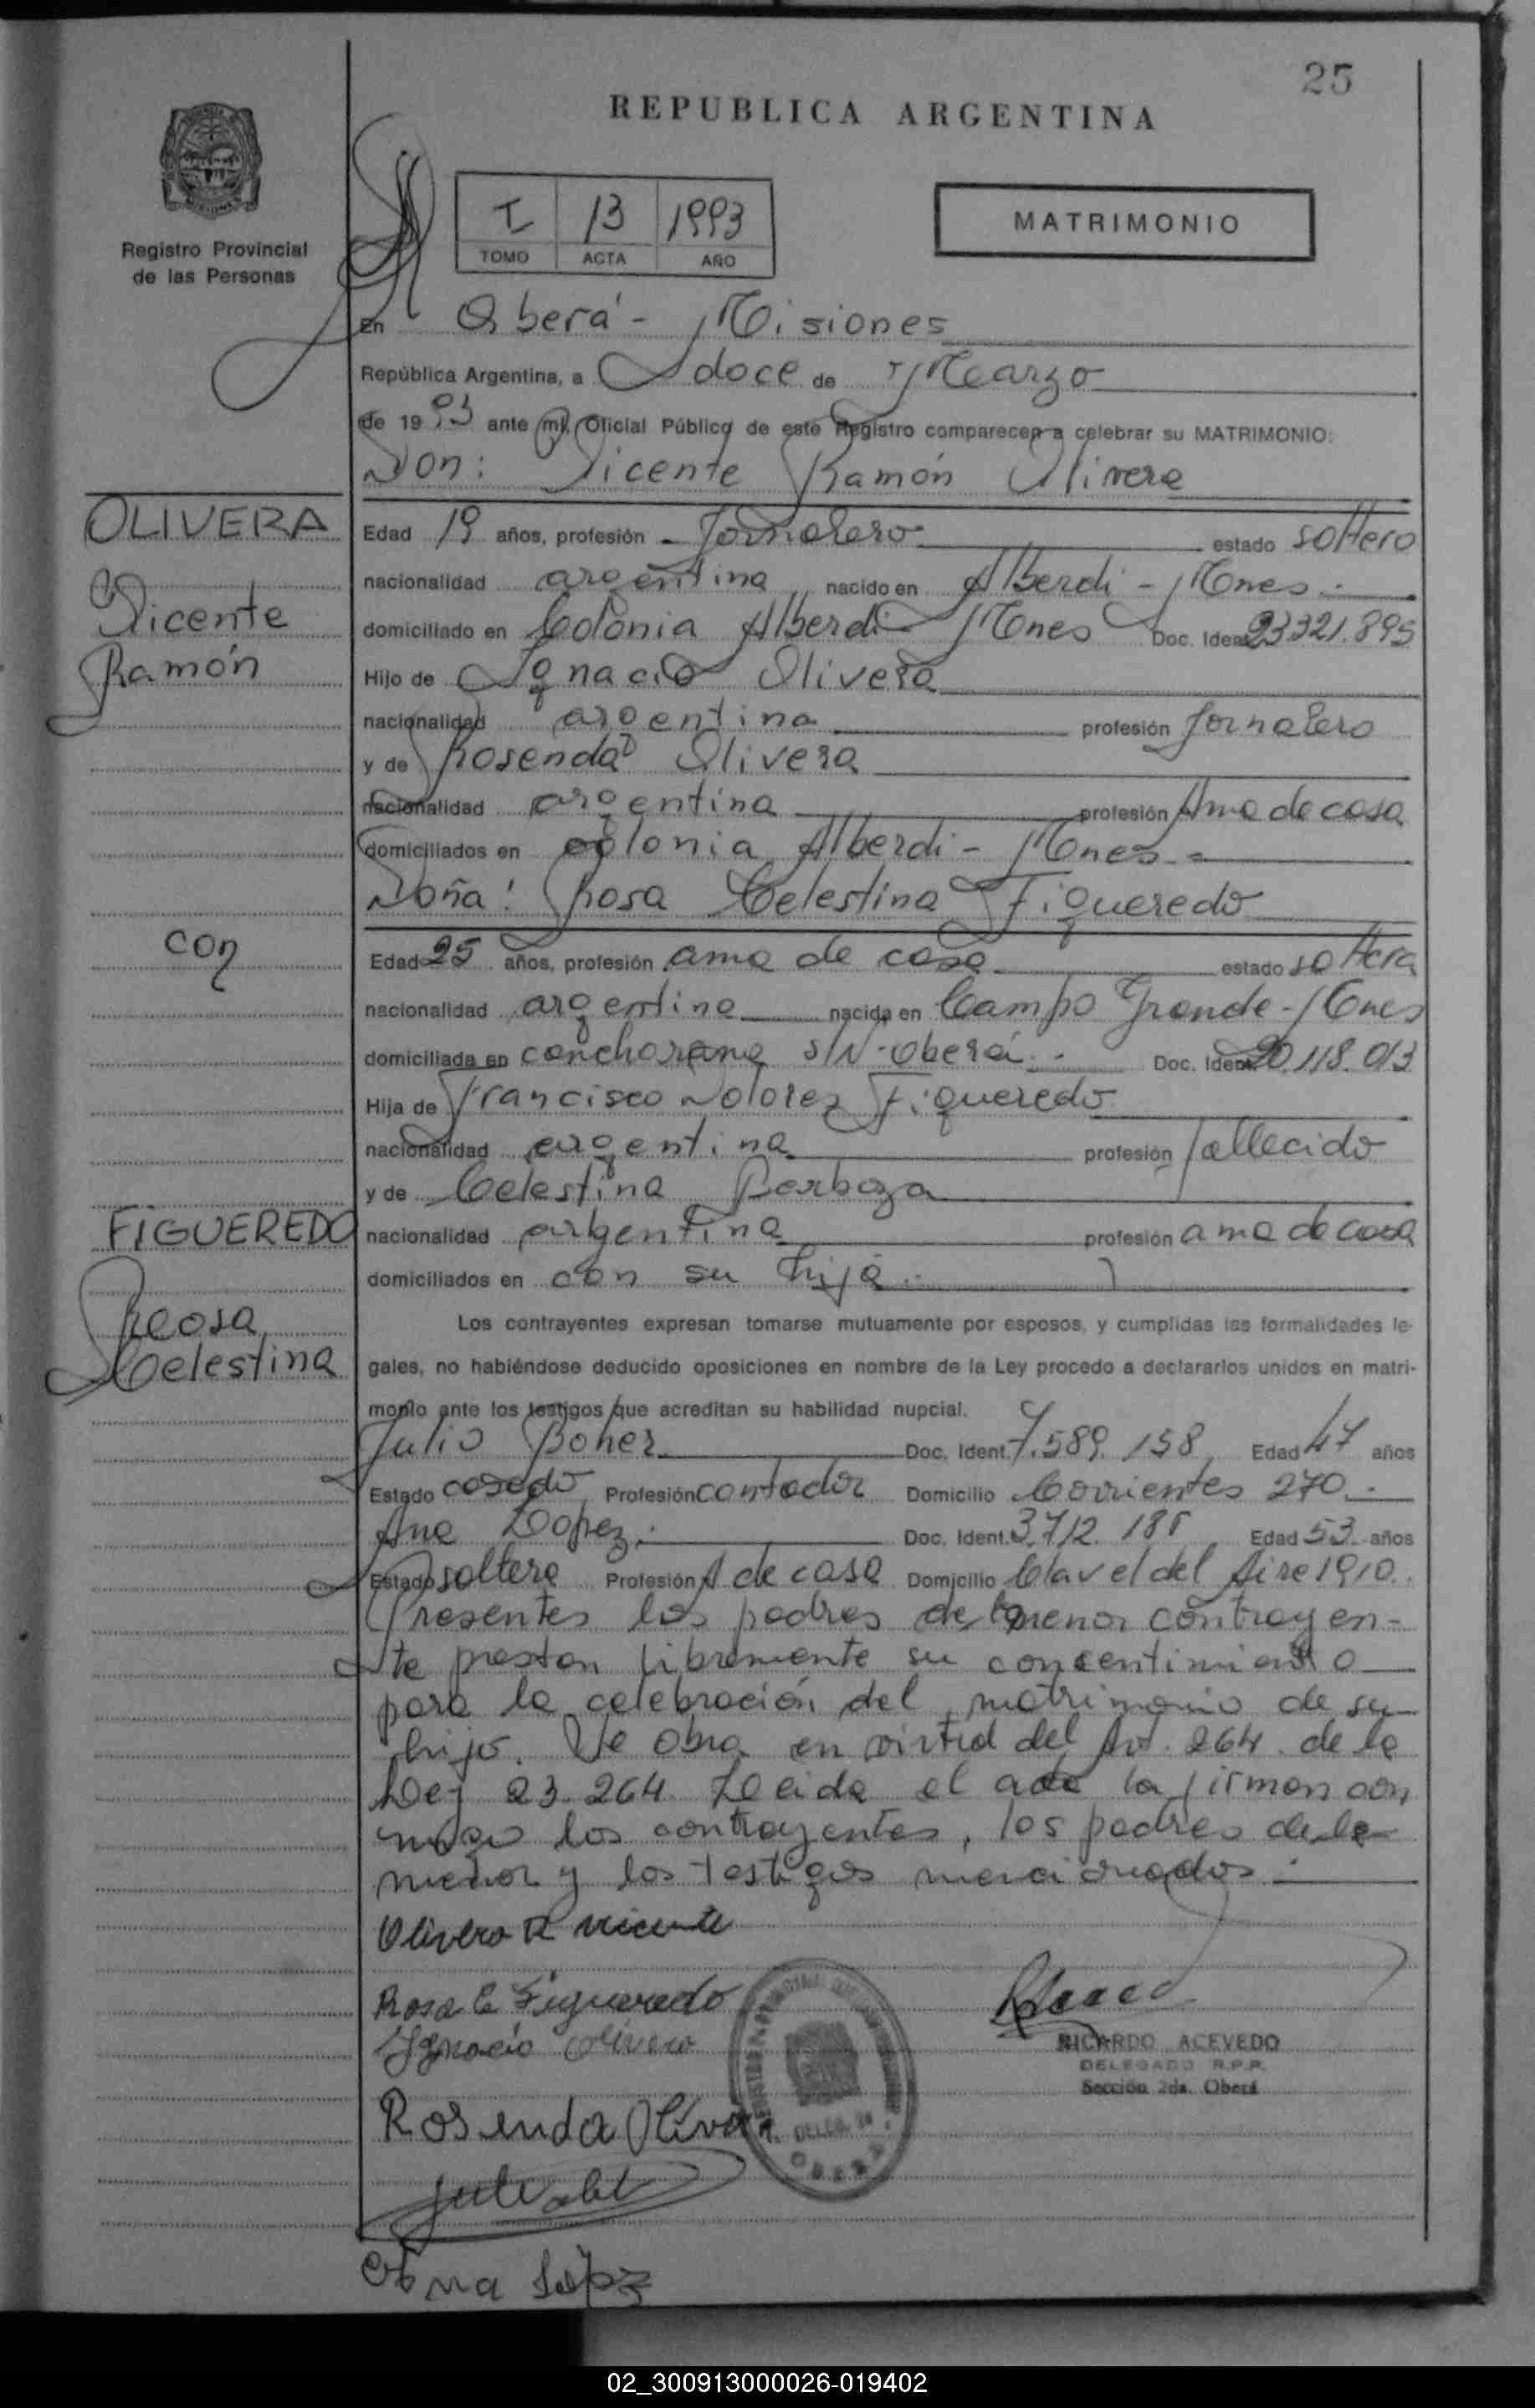 25
REPUBLICA ARGENTINA
Registro Provincial
de las Personas
I 13 1993
TOMO ACTA AÑO
MATRIMONIO
En Oberá - Misiones
República Argentina, a doce de Marzo
de 1993 ante mí, Oficial Público de este Registro comparecen a celebrar su MATRIMONIO:
Don: Vicente Ramón Olivera
OLIVERA
Vicente
Ramón
Edad 19 años, profesión Jornalero estado soltero
nacionalidad argentina nacido en Alberdi - Mnes.
domiciliado en Colonia Alberdi - Mnes Doc. Ident. 23.321.895
Hijo de Ignacio Olivera
nacionalidad argentina profesión Jornalero
y de Rosenda Olivera
nacionalidad argentina profesión Ama de casa
domiciliados en colonia Alberdi - Mnes.
Doña: Rosa Celestina Figueredo
con
Edad 25 años, profesión ama de casa estado soltera
nacionalidad argentina nacida en Campo Grande - Mnes
domiciliada en S/N - Oberá. Doc. Ident. 20.118.013
Hija de Francisco Dolores Figueredo
nacionalidad argentina profesión fallecido
y de Celestina Barboza
FIGUEREDO
Rosa
Celestina
nacionalidad argentina profesión ama de casa
domiciliados en con su hija.
Los contrayentes expresan tomarse mutuamente por esposos, y cumplidas las formalidades le-
gales, no habiéndose deducido oposiciones en nombre de la Ley procedo a declararlos unidos en matri-
monio ante los testigos que acreditan su habilidad nupcial.
Julio Doc. Ident. 7.589.158 Edad 47 años
Estado casado Profesión contador Domicilio Corrientes 270.
Ana Lopez. Doc. Ident. 3.712. Edad 53 años
Estado soltera Profesión A de casa Domicilio Clavel del Aire 1910.
Presentes los padres del menor contrayen-
te prestan libremente su concentimiento
para la celebración del matrimonio de su
hijo. Se obra en virtud del Art. 264. de la
Ley 23.264. Leida el acta la firman con
migo los contrayentes, los padres de la
menor y los testigos mencionados.
Olivera R vicente
Rosa C Figueredo
Ygnacio Olivera
RICARDO ACEVEDO
DELEGADO R.P.P.
Sección 2da. Oberá
Rosenda Olivera
OBERA
Ana López
02_300913000026-019402